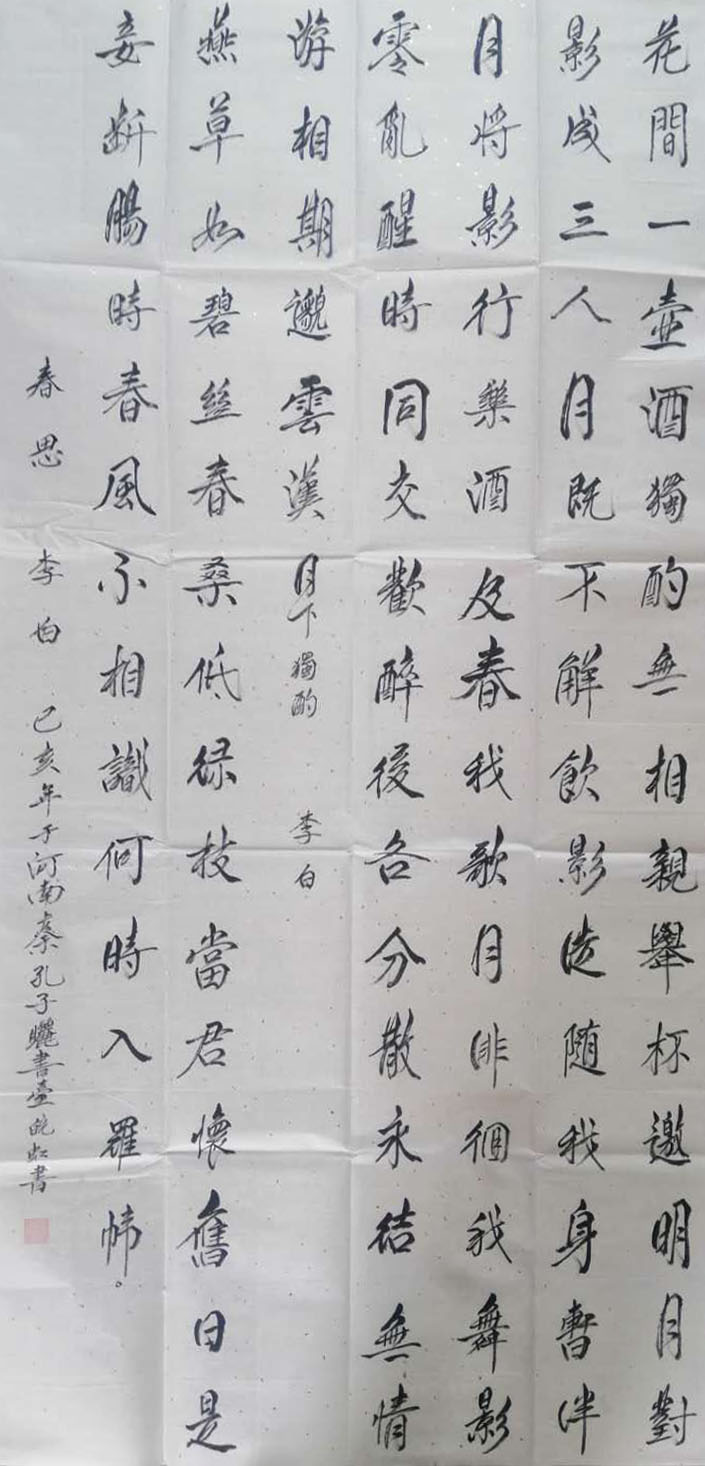 花間一壺酒獨酌無相親舉杯邀明月對
影成三人月既不解飲影徒随我身暫伴
月将影行樂酒及春我歌月徘徊我舞影
零亂醒時同交歡醉後各分散永結無情
游相期邈雲漢 月下獨酌 李白
燕草如碧絲春桑低緑枝當君懷舊日是
妾斷腸時春風不相識何時入羅幃。
春思 李白 己亥年于河南秦孔子曬書臺晚虹書